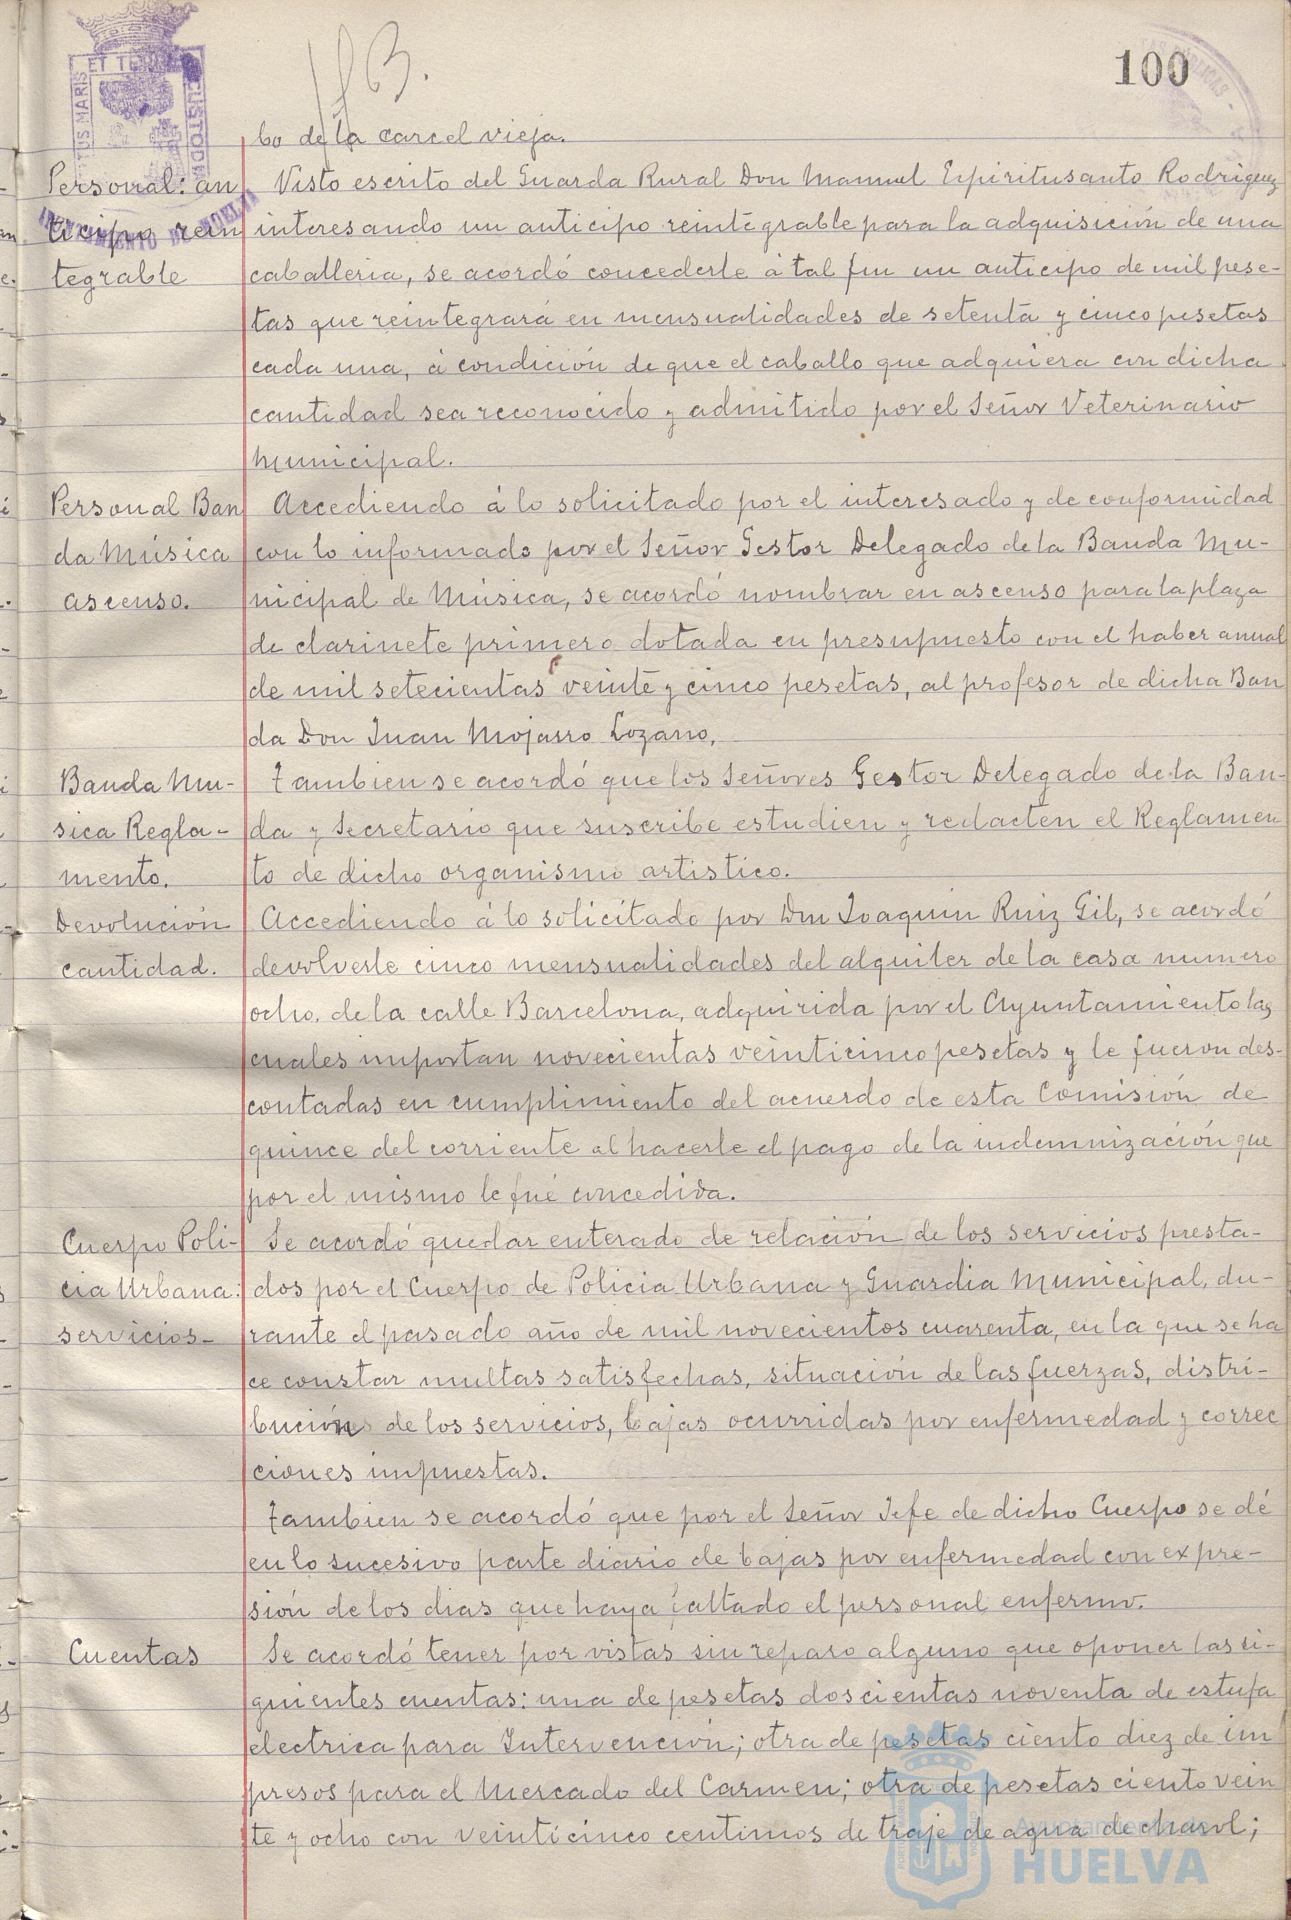 103.
100
PORTUS MARIS ET TERRAE CUSTODIA
AYUNTAMIENTO DE HUELVA
bo de la carcel vieja.
Personal: an
ticipo rein
tegrable
Visto escrito del Guarda Rural Don Manuel Espiritusanto Rodriguez
interesando un anticipo reintegrable para la adquisición de una
caballeria, se acordó concederle á tal fin un anticipo de mil pese-
tas que reintegrará en mensualidades de setenta y cinco pesetas
cada una, á condición de que el caballo que adquiera con dicha
cantidad sea reconocido y admitido por el Señor Veterinario
Municipal.
Personal Ban
da Música
ascenso.
Accediendo á lo solicitado por el interesado y de conformidad
con lo informado por el Señor Gestor Delegado de la Banda Mu-
nicipal de Música, se acordó nombrar en ascenso para la plaza
de clarinete primero dotada en presupuesto con el haber anual
de mil setecientas veinte y cinco pesetas, al profesor de dicha Ban
da Don Juan Mojarro Lozano,
Banda Mu-
sica Regla-
mento.
Tambien se acordó que los Señores Gestor Delegado de la Ban-
da y Secretario que suscribe estudien y redacten el Reglamen
to de dicho organismo artistico.
Devolución
cantidad.
Accediendo á lo solicitado por Don Joaquin Ruiz Gil, se acordó
devolverle cinco mensualidades del alquiler de la casa numero
ocho, de la calle Barcelona, adquirida por el Ayuntamiento las
cuales importan novecientas veinticinco pesetas y le fueron des-
contadas en cumplimiento del acuerdo de esta Comisión de
quince del corriente al hacerle el pago de la indemnización que
por el mismo le fué concedida.
Cuerpo Poli-
cia Urbana:
servicios-
Se acordó quedar enterado de relación de los servicios presta-
dos por el Cuerpo de Policia Urbana y Guardia Municipal, du-
rante el pasado año de mil novecientos cuarenta, en la que se ha
ce constar multas satisfechas, situación de las fuerzas, distri-
buciones de los servicios, bajas ocurridas por enfermedad y correc
ciones impuestas.
Tambien se acordó que por el Señor Jefe de dicho Cuerpo se dé
en lo sucesivo parte diario de bajas por enfermedad con expre-
sión de los dias que haya faltado el personal enfermo.
Cuentas
Se acordó tener por vistas sin reparo alguno que oponer las si-
guientes cuentas: una de pesetas doscientas noventa de estufa
electrica para Intervención; otra de pesetas ciento diez de im
presos para el Mercado del Carmen; otra de pesetas ciento vein
te y ocho con veinticinco centimos de traje de agua de charol;
Ayuntamiento de
HUELVA